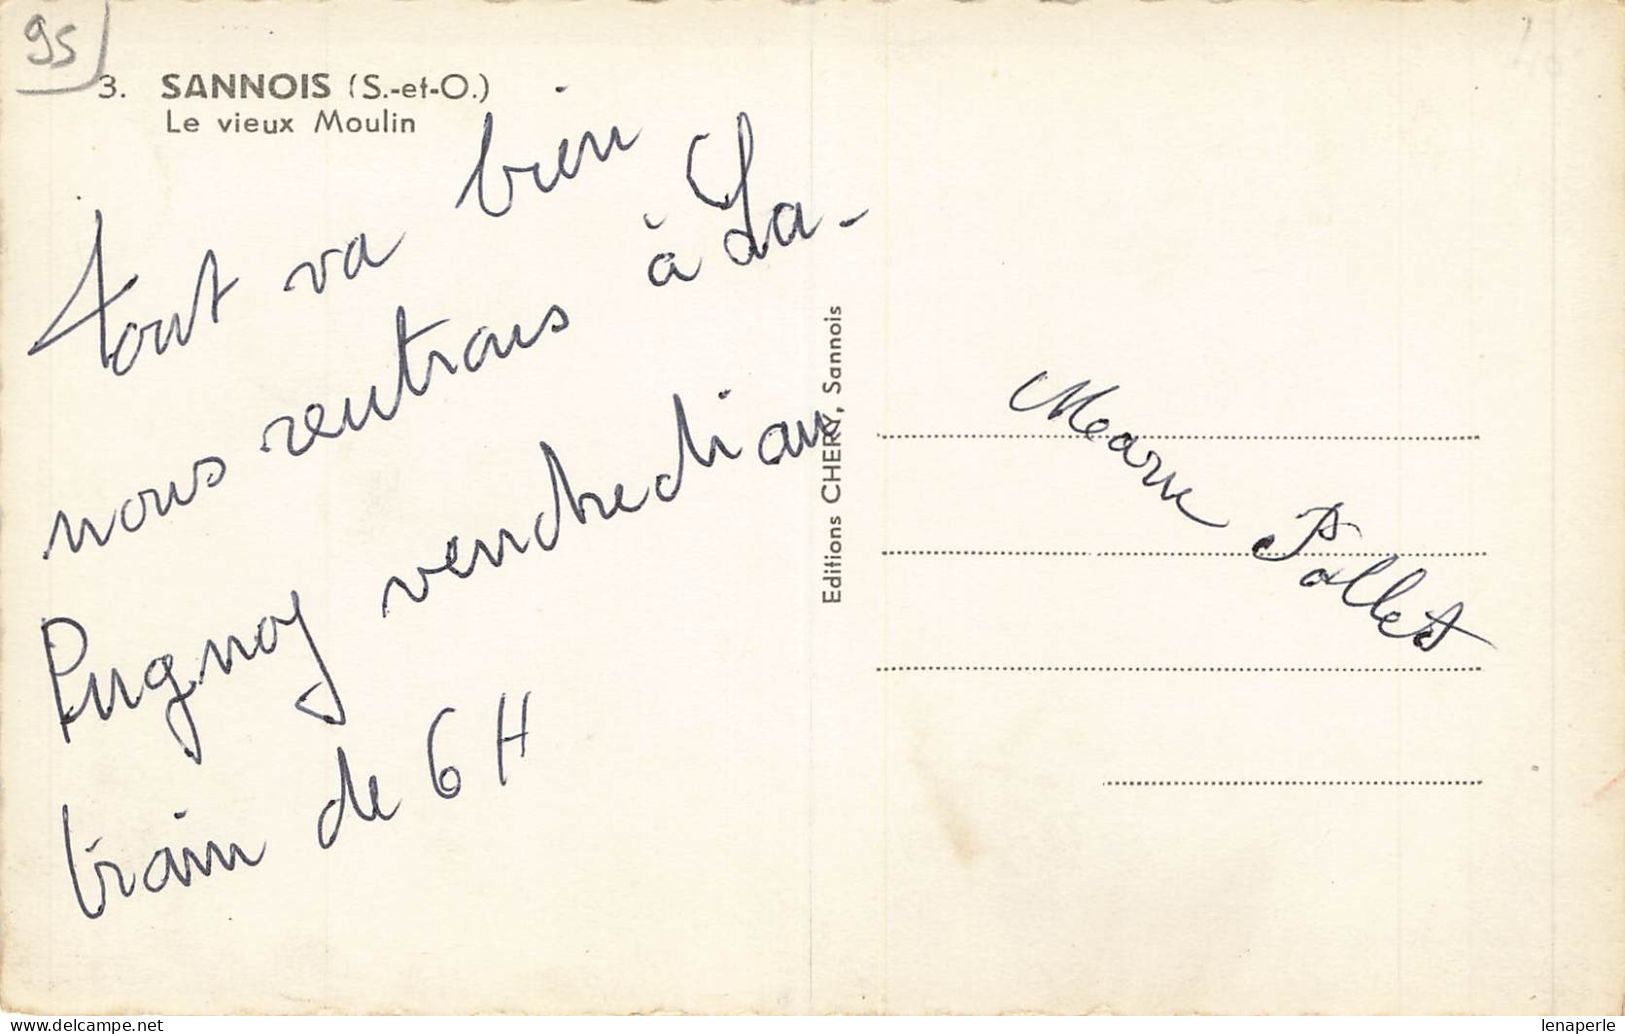 95
3. SANNOIS (S.-et-O.)
Le vieux Moulin
tout va bien
nous rentrons à La-
Pugnoy vendredi au
train de 6 H
Editions CHERY, Sannois
Pollet
lenaperle